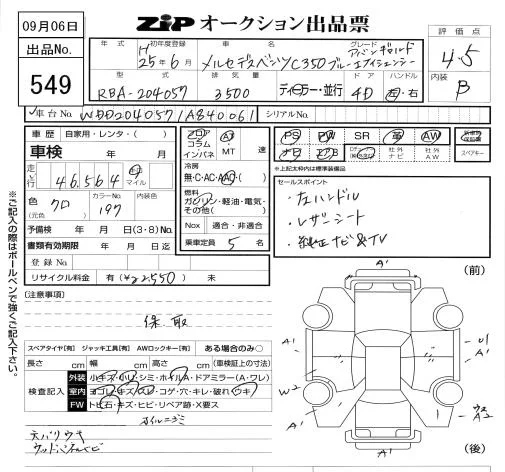 09月06日
ZIP オークション出品票
出品No.
549
年式 初年度登録 車名 グレード 評価点
H 25年6月 メルセデスベンツC350ブルーエフィシェンシー アバンギャルド
4.5
型式 排気量 ドア ハンドル 内装
RBA-204057 3500 ディーラー・並行 4D 左・右 B
車台No. WDD2040571A840061 シリアルNo.
車歴 自家用・レンタ・( )
車検 年 月
走行 46,564 キロ マイル
色 クロ (元色) カラーNo. 197 内装色
予備検 年 月 日(3・8)No.
書類有効期限 年 月 日迄
登録No.
リサイクル料金 有(¥22550) 未
フロア コラム インパネ A3 ・ MT 速
冷房
無・C・AC・AAC・( )
燃料
ガソリン・軽油・電気・その他( )
Nox 適合・非適合
乗車定員 5 名
PS PW SR 革 AW 新車時保証書
ナビ エアB 社外ナビ 社外AW スペアキー
*上記太枠内は標準装備
セールスポイント
・左ハンドル
・レザーシート
・純正ナビ&TV
(注意事項)
保、取
スペアタイヤ[有] ジャッキ工具[有] AWロックキー[有] ある場合のみ○
長さ cm 幅 cm 高さ cm (車検証上の寸法)
検査記入
外装 小キズ・小凹・シミ・ホイルA・ドアミラー(A・ワレ)
室内 ヨゴレ・キズ・スレ・コゲ・穴・キレ・破れ・ウキ
FW トビ石・キズ・ヒビ・リペア跡・X要ス
天バリウキ
ウッドパネルヒビ
※ご記入の際はボールペンで強くご記入下さい。
(前)
A'
A'
U1
A'
W2
A2
A'
A'
(後)